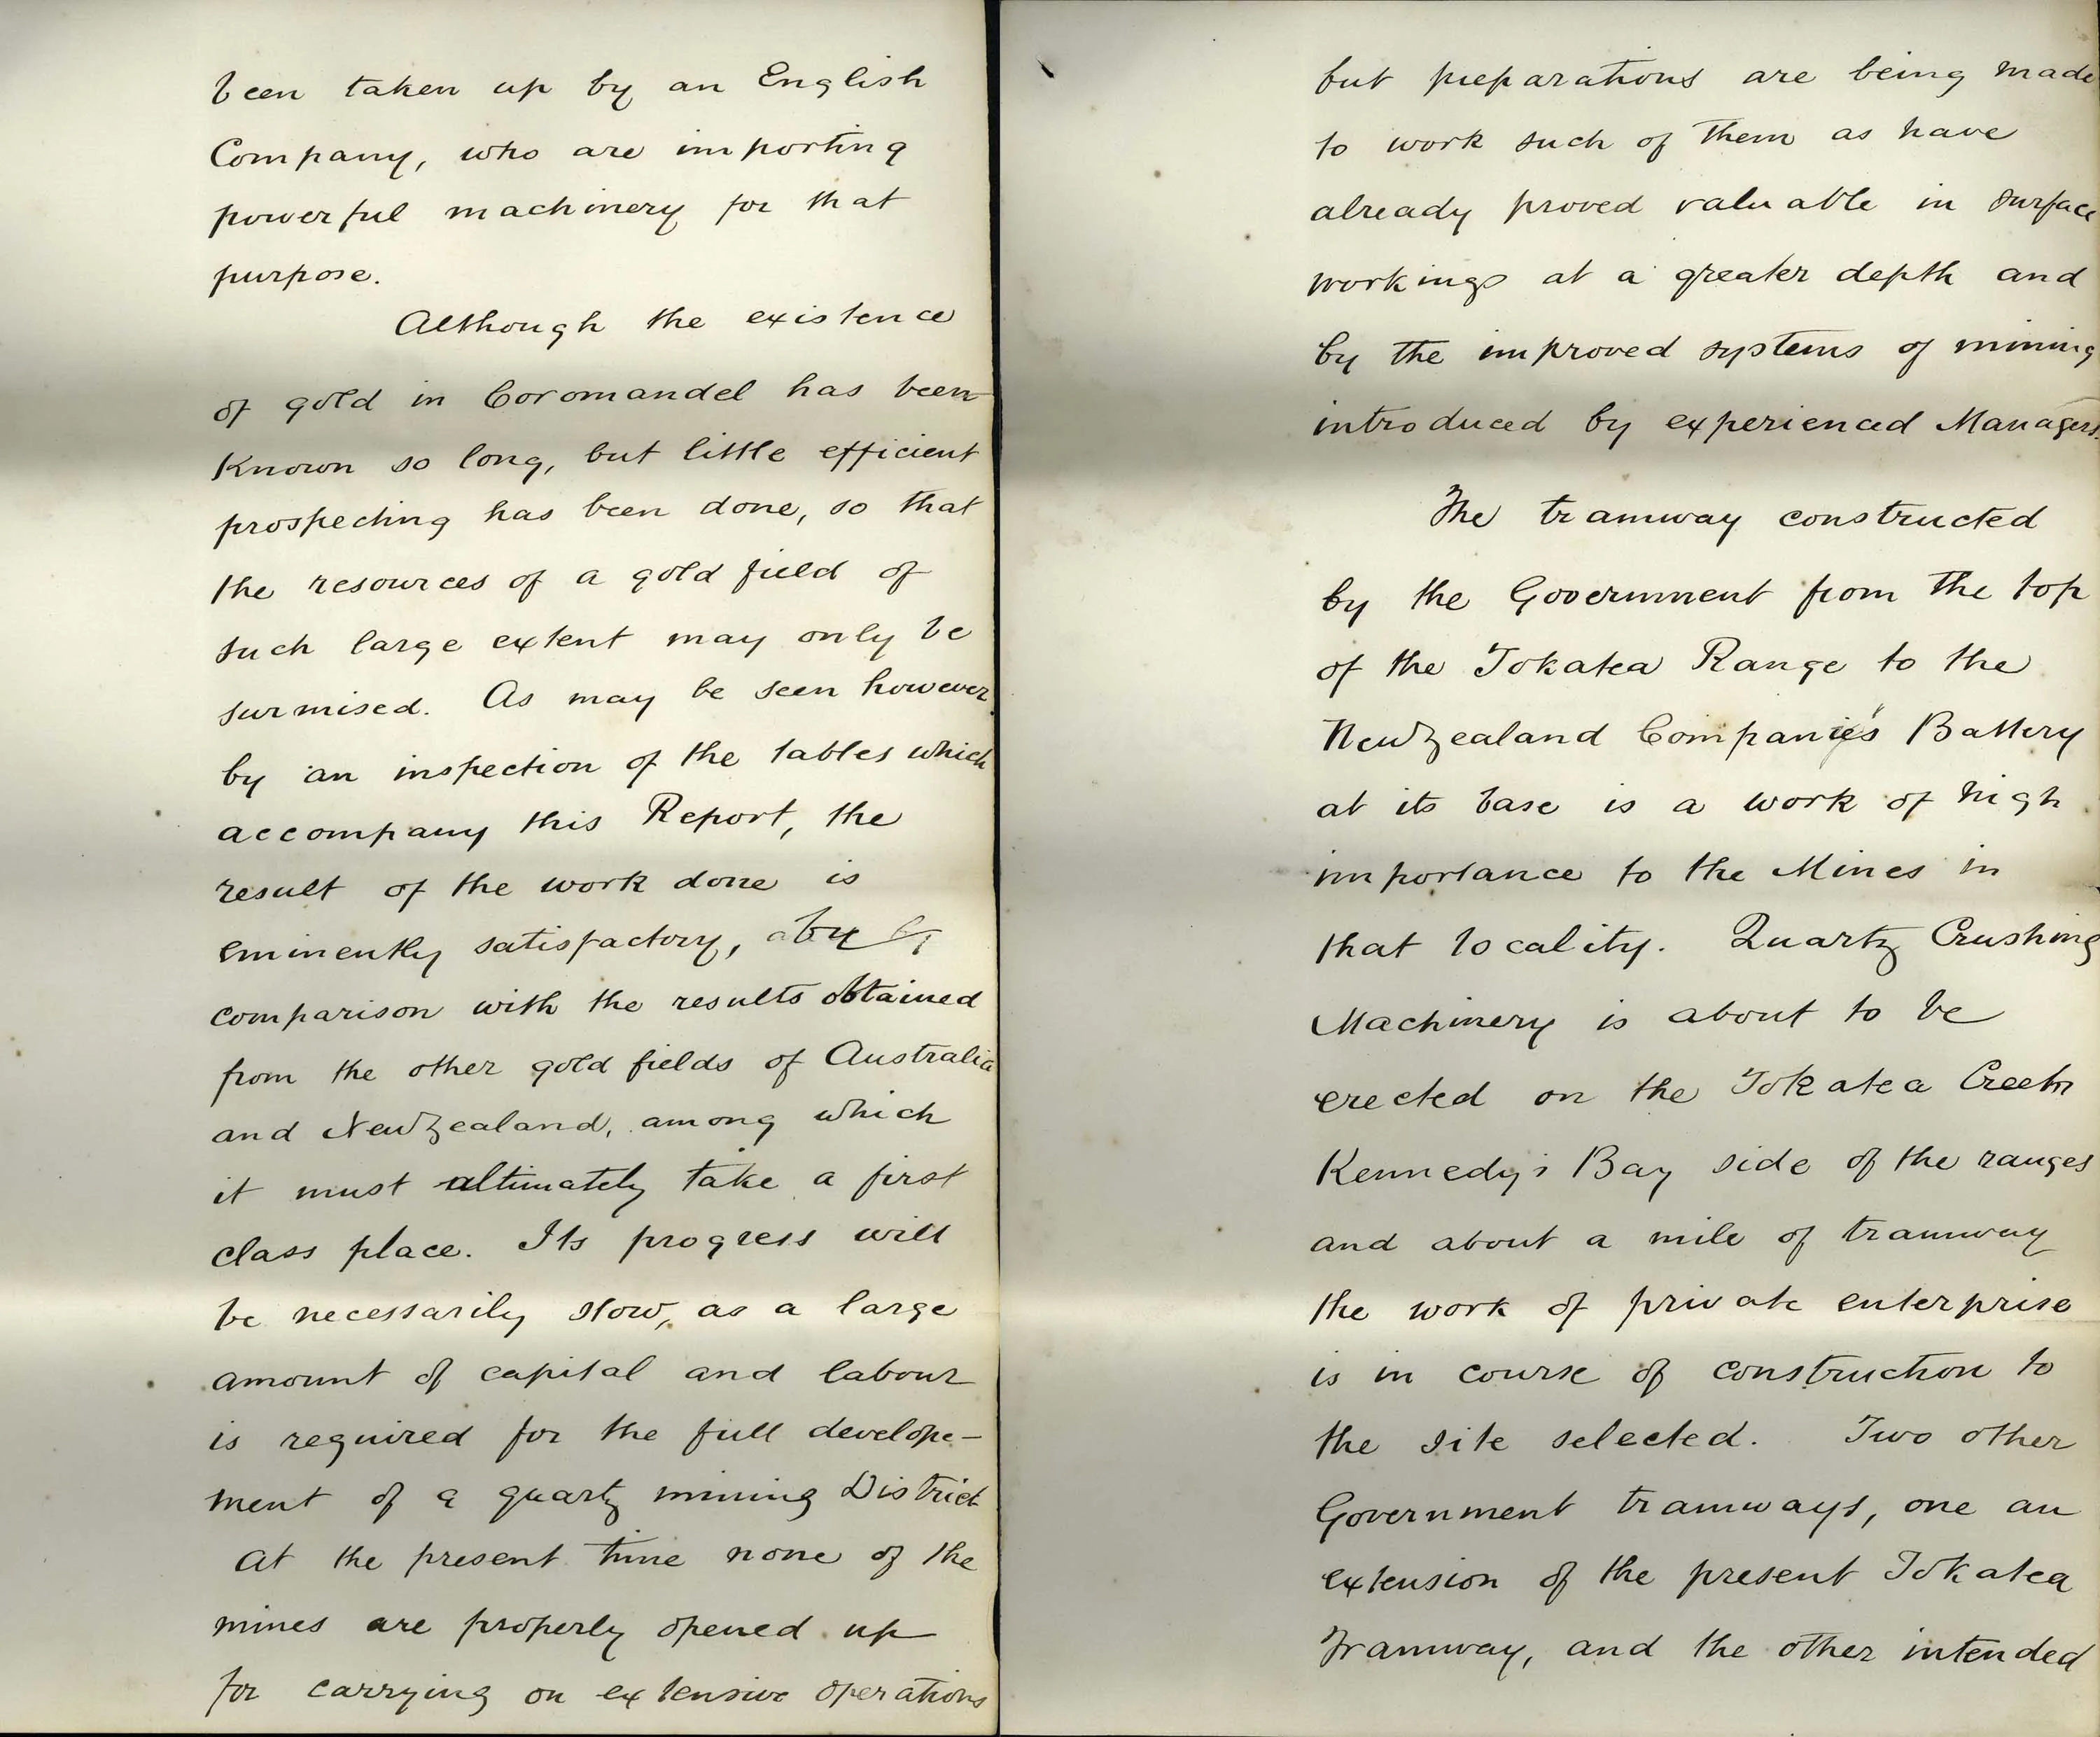 been taken up by an English
Company, who are importing
powerful machinery for that
purpose.
Although the existence
of gold in Coromandel has been
known so long, but little efficient
prospecting has been done, so that
the resources of a gold field of
such large extent may only be
surmised. As may be seen however
by an inspection of the tables which
accompany this Report, the
result of the work done is
eminently satisfactory, by
comparison with the results obtained
from the other gold fields of Australia
and New Zealand, among which
it must ultimately take a first
class place. Its progress will
be necessarily slow, as a large
amount of capital and labour
is required for the full develope-
ment of a quartz mining District
At the present time none of the
mines are properly opened up
for carrying on extensive operations
but preparations are being made
to work such of them as have
already proved valuable in surface
workings at a greater depth and
by the improved systems of mining
introduced by experienced Managers.
The tramway constructed
by the Government from the top
of the Tokatea Range to the
New Zealand Companie's Battery
at its base is a work of high
importance to the Mines in
that locality. Quartz Crushing
Machinery is about to be
erected on the Tokatea Creek
Kennedy's Bay side of the ranges
and about a mile of tramway
the work of private enterprise
is in course of construction to
the site selected. Two other
Government tramways, one an
extension of the present Tokatea
Tramway, and the other intended